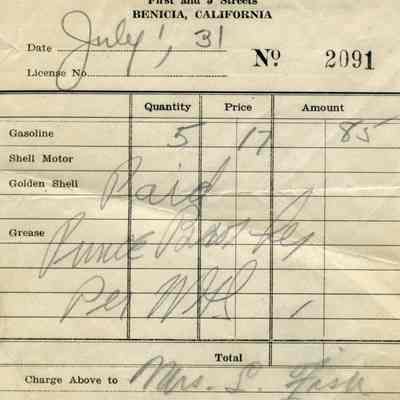 First and J Streets
BENICIA, CALIFORNIA
Date July 1, 31
License No.
No 2091
Quantity Price Amount
Gasoline 5 17 85
Shell Motor
Golden Shell
Paid
Grease
Per
Total
Charge Above to Mrs. L. Fish